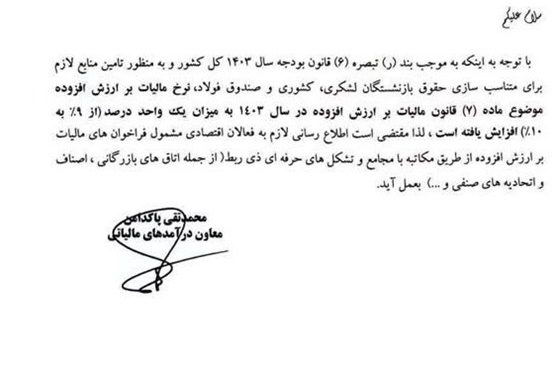 سلام علیکم
با توجه به اینکه به موجب بند (ر) تبصره (۶) قانون بودجه سال ۱۴۰۳ کل کشور و به منظور تامین منابع لازم
برای متناسب سازی حقوق بازنشستگان لشکری، کشوری و صندوق فولاد، نرخ مالیات بر ارزش افزوده
موضوع ماده (۷) قانون مالیات بر ارزش افزوده در سال ۱۴۰۳ به میزان یک واحد درصد (از ۹٪ به
۱۰٪) افزایش یافته است ، لذا مقتضی است اطلاع رسانی لازم به فعالان اقتصادی مشمول فراخوان های مالیات
بر ارزش افزوده از طریق مکاتبه با مجامع و تشکل های حرفه ای ذی ربط( از جمله اتاق های بازرگانی ، اصناف
و اتحادیه های صنفی و ...) بعمل آید.
محمدتقی پاکدامن
معاون درآمدهای مالیاتی